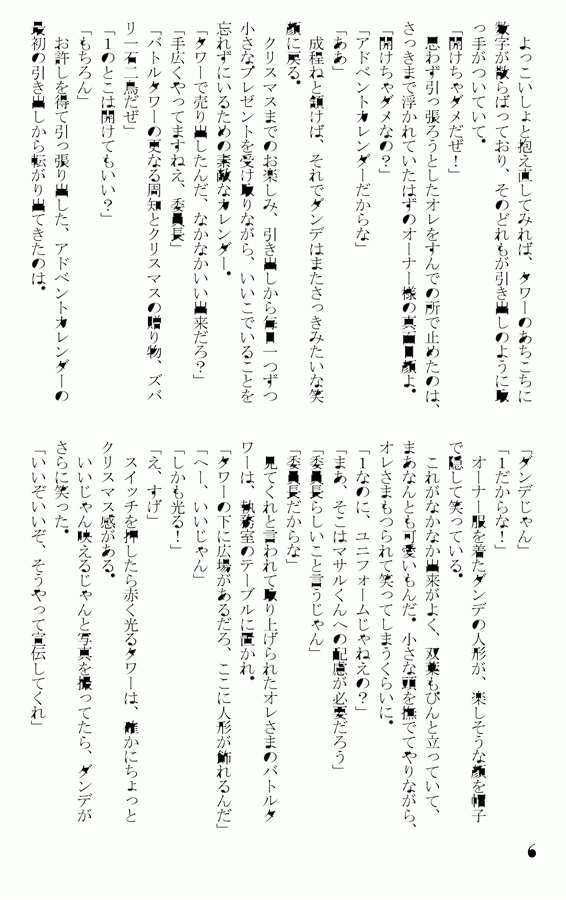 よっこいしょと抱え直してみれば、タワーのあちこちに
数字が散らばっており、そのどれもが引き出しのように取
っ手がついていて。
「開けちゃダメだぜ！」
思わず引っ張ろうとしたオレをすんでの所で止めたのは、
さっきまで浮かれていたはずのオーナー様の真面目顔よ。
「開けちゃダメなの？」
「アドベントカレンダーだからな」
「ああ」
成程ねと頷けば、それでダンデはまたさっきみたいな笑
顔に戻る。
クリスマスまでのお楽しみ、引き出しから毎日一つずつ
小さなプレゼントを受け取りながら、いいこでいることを
忘れずにいるための素敵なカレンダー。
「タワーで売り出したんだ、なかなかいい出来だろ？」
「手広くやってますねえ、委員長」
「バトルタワーの更なる周知とクリスマスの贈り物、ズバ
リ一石二鳥だぜ」
「１のとこは開けてもいい？」
「もちろん」
お許しを得て引っ張り出した、アドベントカレンダーの
最初の引き出しから転がり出てきたのは。
「ダンデじゃん」
「１だからな！」
オーナー服を着たダンデの人形が、楽しそうな顔を帽子
で隠して笑っている。
これがなかなか出来がよく、双葉もぴんと立っていて、
まあなんとも可愛いもんだ。小さな頭を撫でてやりながら、
オレさまもつられて笑ってしまうくらいに。
「１なのに、ユニフォームじゃねえの？」
「まあ、そこはマサルくんへの配慮が必要だろう」
「委員長らしいこと言うじゃん」
「委員長だからな」
見てくれと言われて取り上げられたオレさまのバトルタ
ワーは、執務室のテーブルに置かれ。
「タワーの下に広場があるだろ、ここに人形が飾れるんだ」
「へー、いいじゃん」
「しかも光る！」
「え、すげ」
スイッチを押したら赤く光るタワーは、確かにちょっと
クリスマス感がある。
いいじゃん映えるじゃんと写真を撮ってたら、ダンデが
さらに笑った。
「いいぞいいぞ、そうやって宣伝してくれ」
6